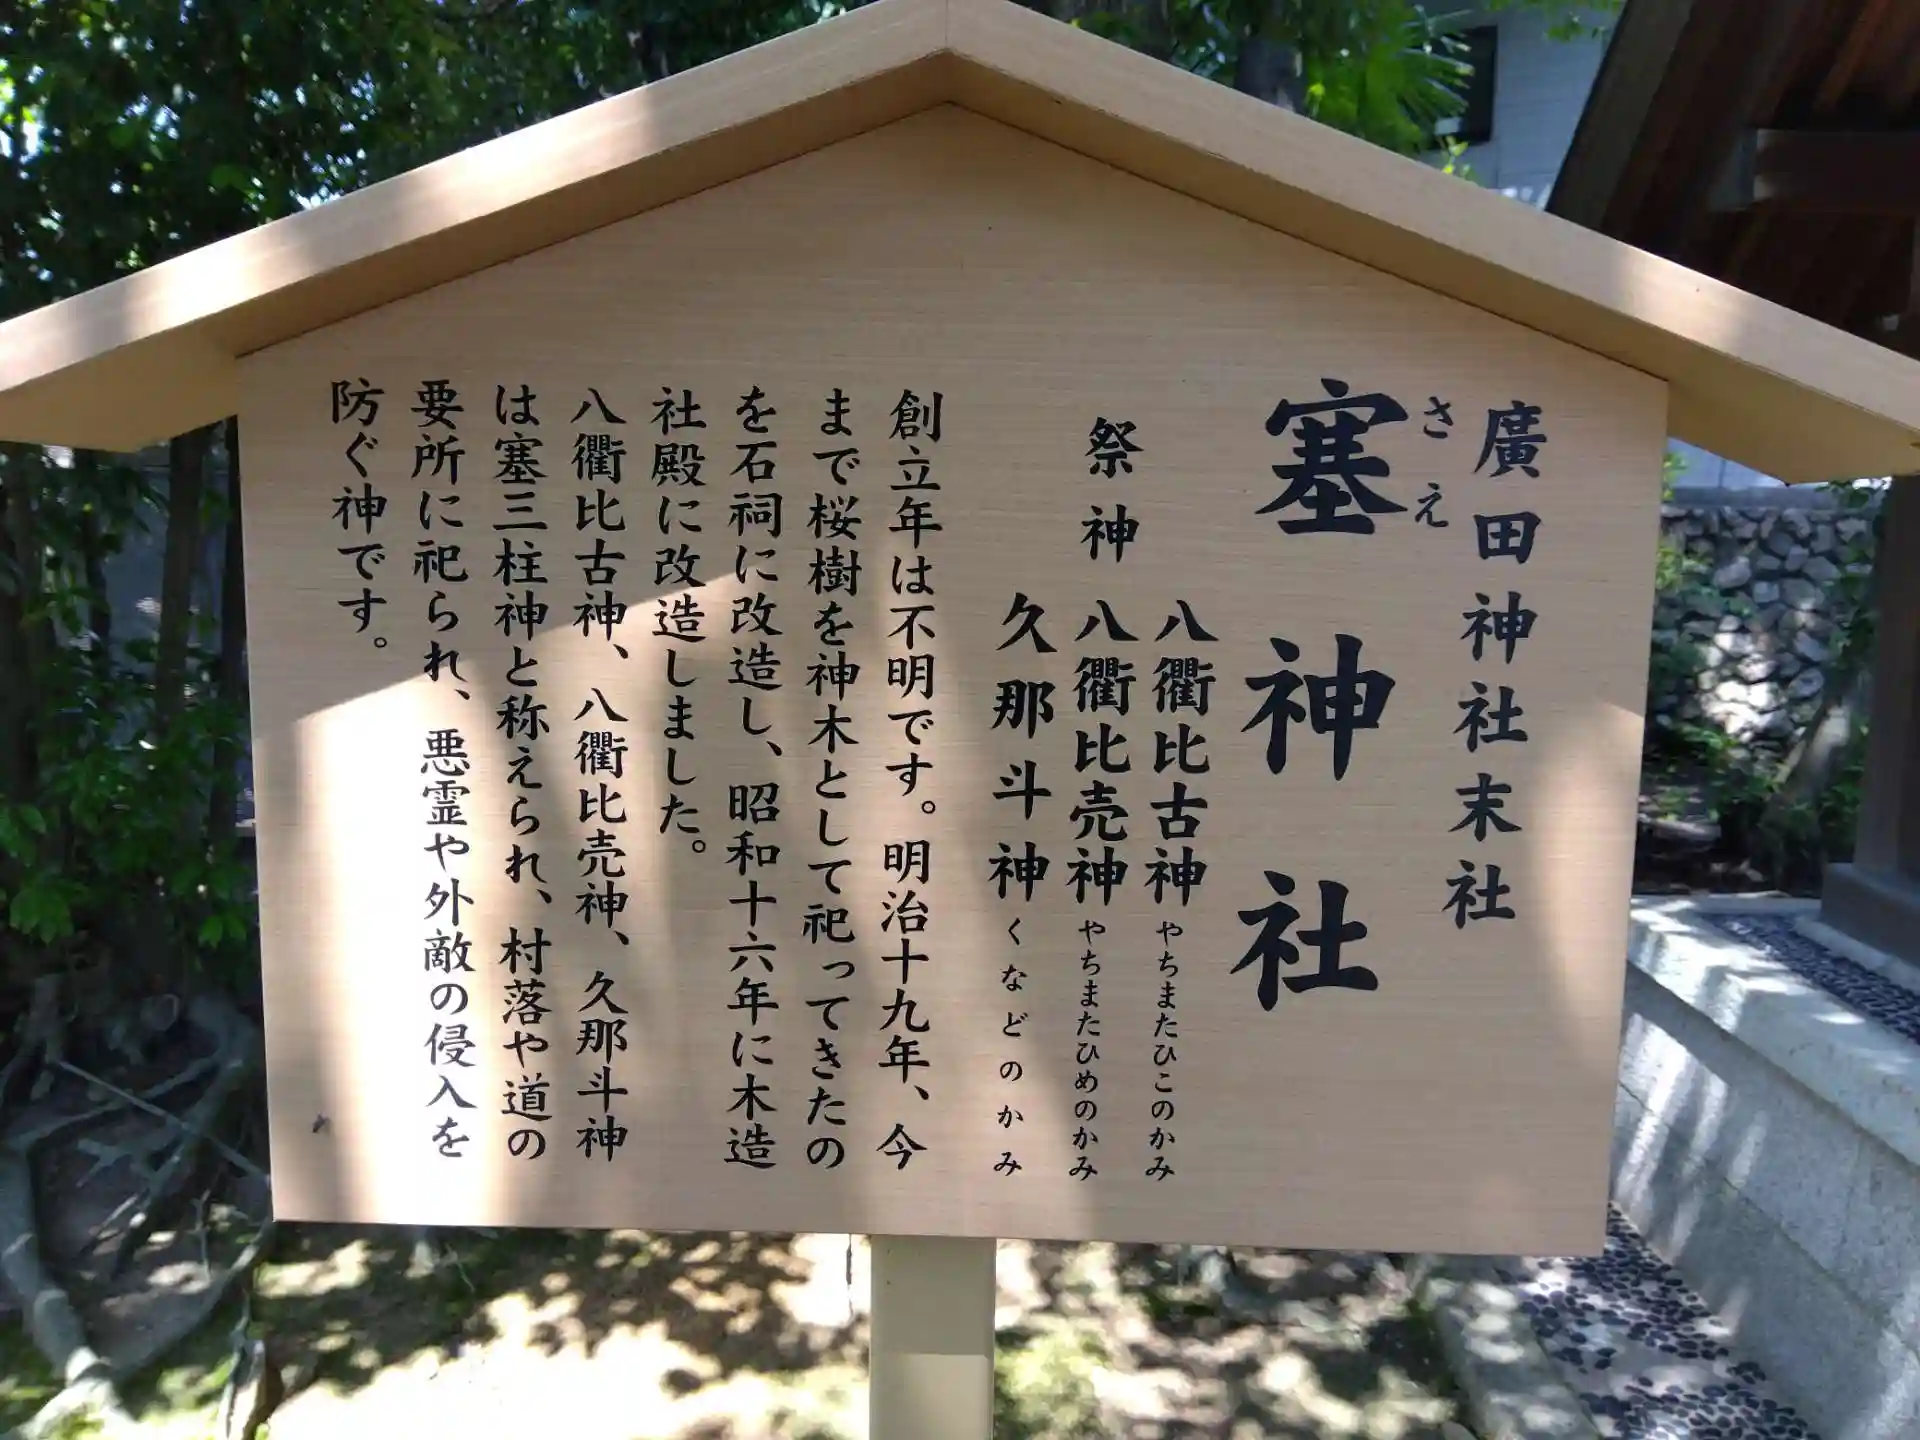 廣田神社末社
さえ
塞神社
八衢比古神 やちまたひこのかみ
祭神 八衢比売神 やちまたひめのかみ
久那斗神 くなどのかみ
創立年は不明です。明治十九年、今
まで桜樹を神木として祀ってきたの
を石祠に改造し、昭和十六年に木造
社殿に改造しました。
八衢比古神、八衢比売神、久那斗神
は塞三柱神と称えられ、村落や道の
要所に祀られ、悪霊や外敵の侵入を
防ぐ神です。